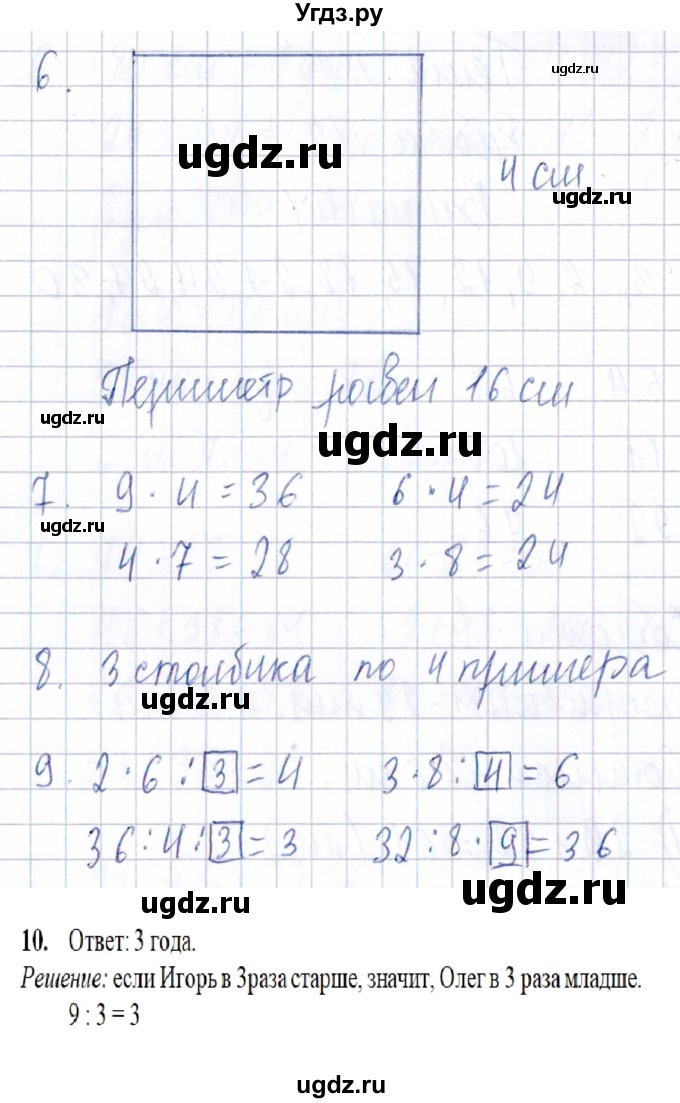 Угдз.ру
6.
ugdz.ru
ugdz.ru
4 см
ugdz.ru
Периметр равен 16 см
ugdz.ru
ugdz.ru
7. 9 · 4 = 36 6 · 4 = 24
ugdz.ru
4 · 7 = 28 3 · 8 = 24
8. 3 столбика по 4 примера
ugdz.ru
ugdz.ru
9. 2 · 6 : 3 = 4 3 · 8 : 4 = 6
36 : 4 : 3 = 3 32 : 8 · 9 = 36
ugdz.ru
ugdz.ru
10. Ответ: 3 года.
Решение: если Игорь в 3раза старше, значит, Олег в 3 раза младше.
9 : 3 = 3
ugdz.ru